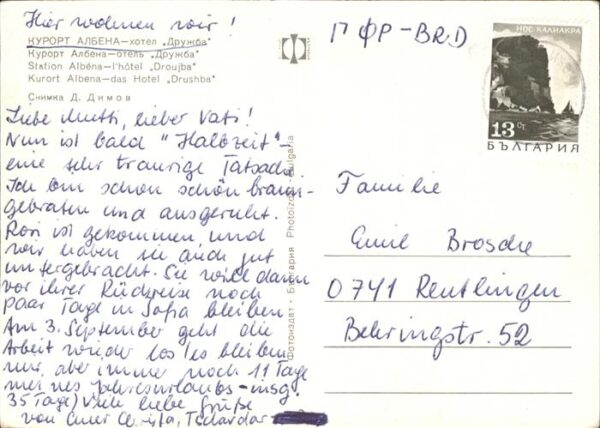 Hier wohnen wir!
КУРОРТ АЛБЕНА—хотел „Дружба"
Курорт Албена—отель „Дружба"
Station Albéna—l'hôtel „Droujba"
Kurort Albena—das Hotel „Drushba"
Снимка Д. Димов
Liebe Mutti, lieber Vati!
Nun ist bald "Halbzeit"-
eine sehr traurige Tatsache.
Ich bin schon schön braun-
gebraten und ausgeruht.
ist gekommen, und
wir haben sie auch gut
untergebracht. Sie will dann
vor ihrer Rückreise noch
paar Tage in Sofia bleiben
Am 3. September geht die
Arbeit wieder los (es bleiben
mir aber immer noch 11 Tage
meines Jahresurlaubs - insg.
35 Tage) Viele liebe Grüße
von Eurer
Фотоиздат • България Photoizdat • Bulgaria
ГФР-BRD
НОС КАЛИАКРА
13 СТ.
БЪЛГАРИЯ
Familie
Emil Brosche
0741 Reutlingen
Behringstr. 52